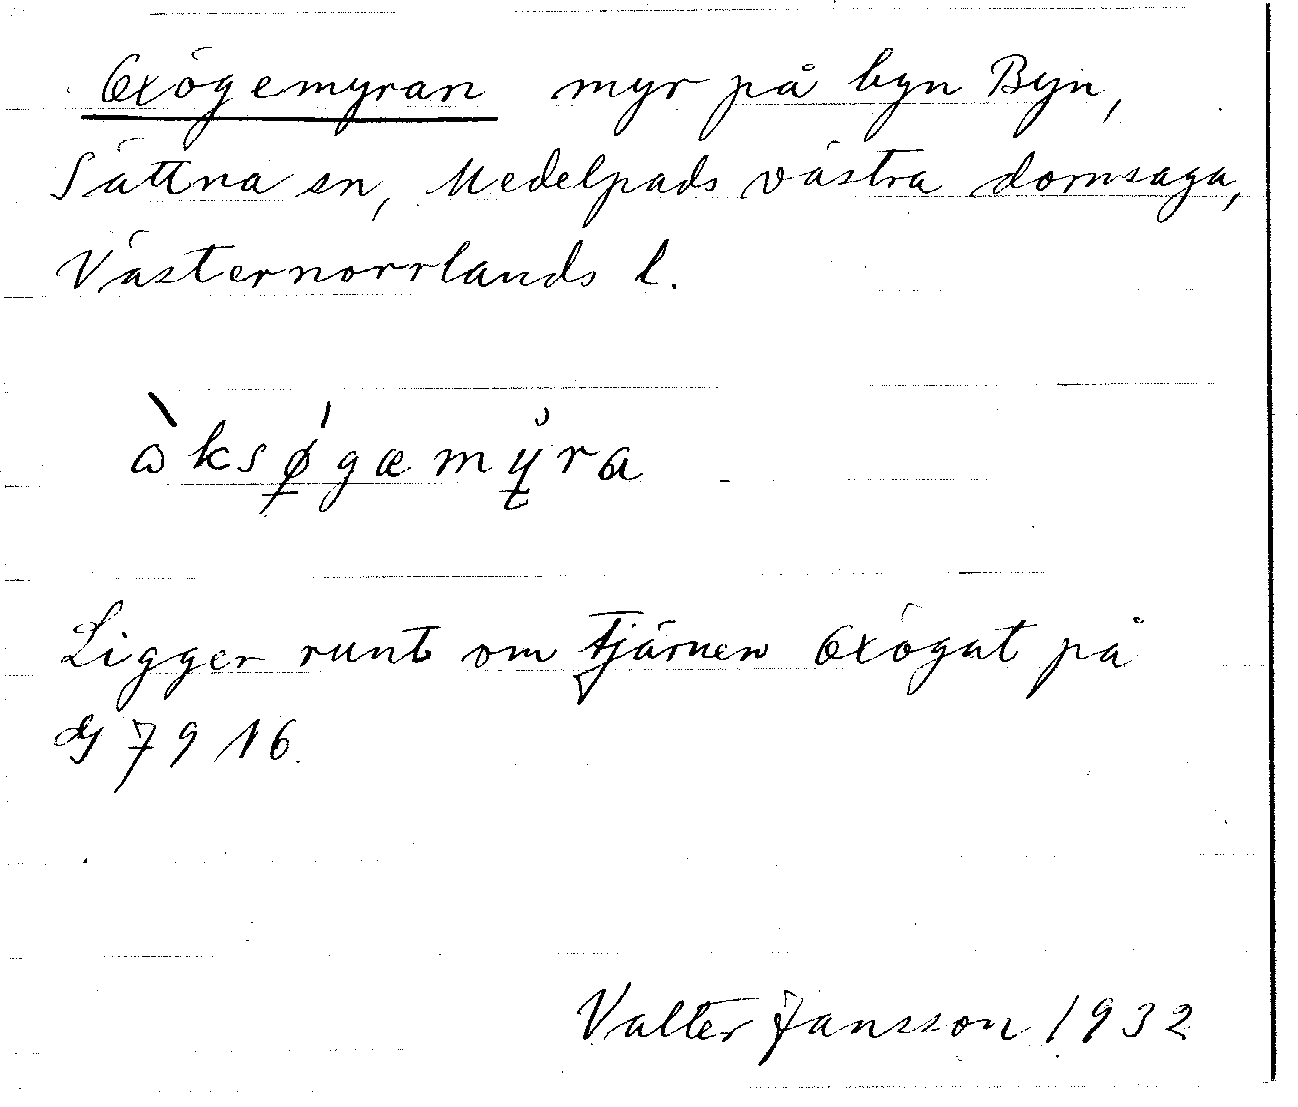 Oxögemyran myr på byn Byn,
Sättna sn, Medelpads västra domsaga,
Västernorrlands l.
ὼksǿ̱gæmy̆ra
Ligger runt om tjärnen Oxögat på
7916.
Valter Jansson 1932